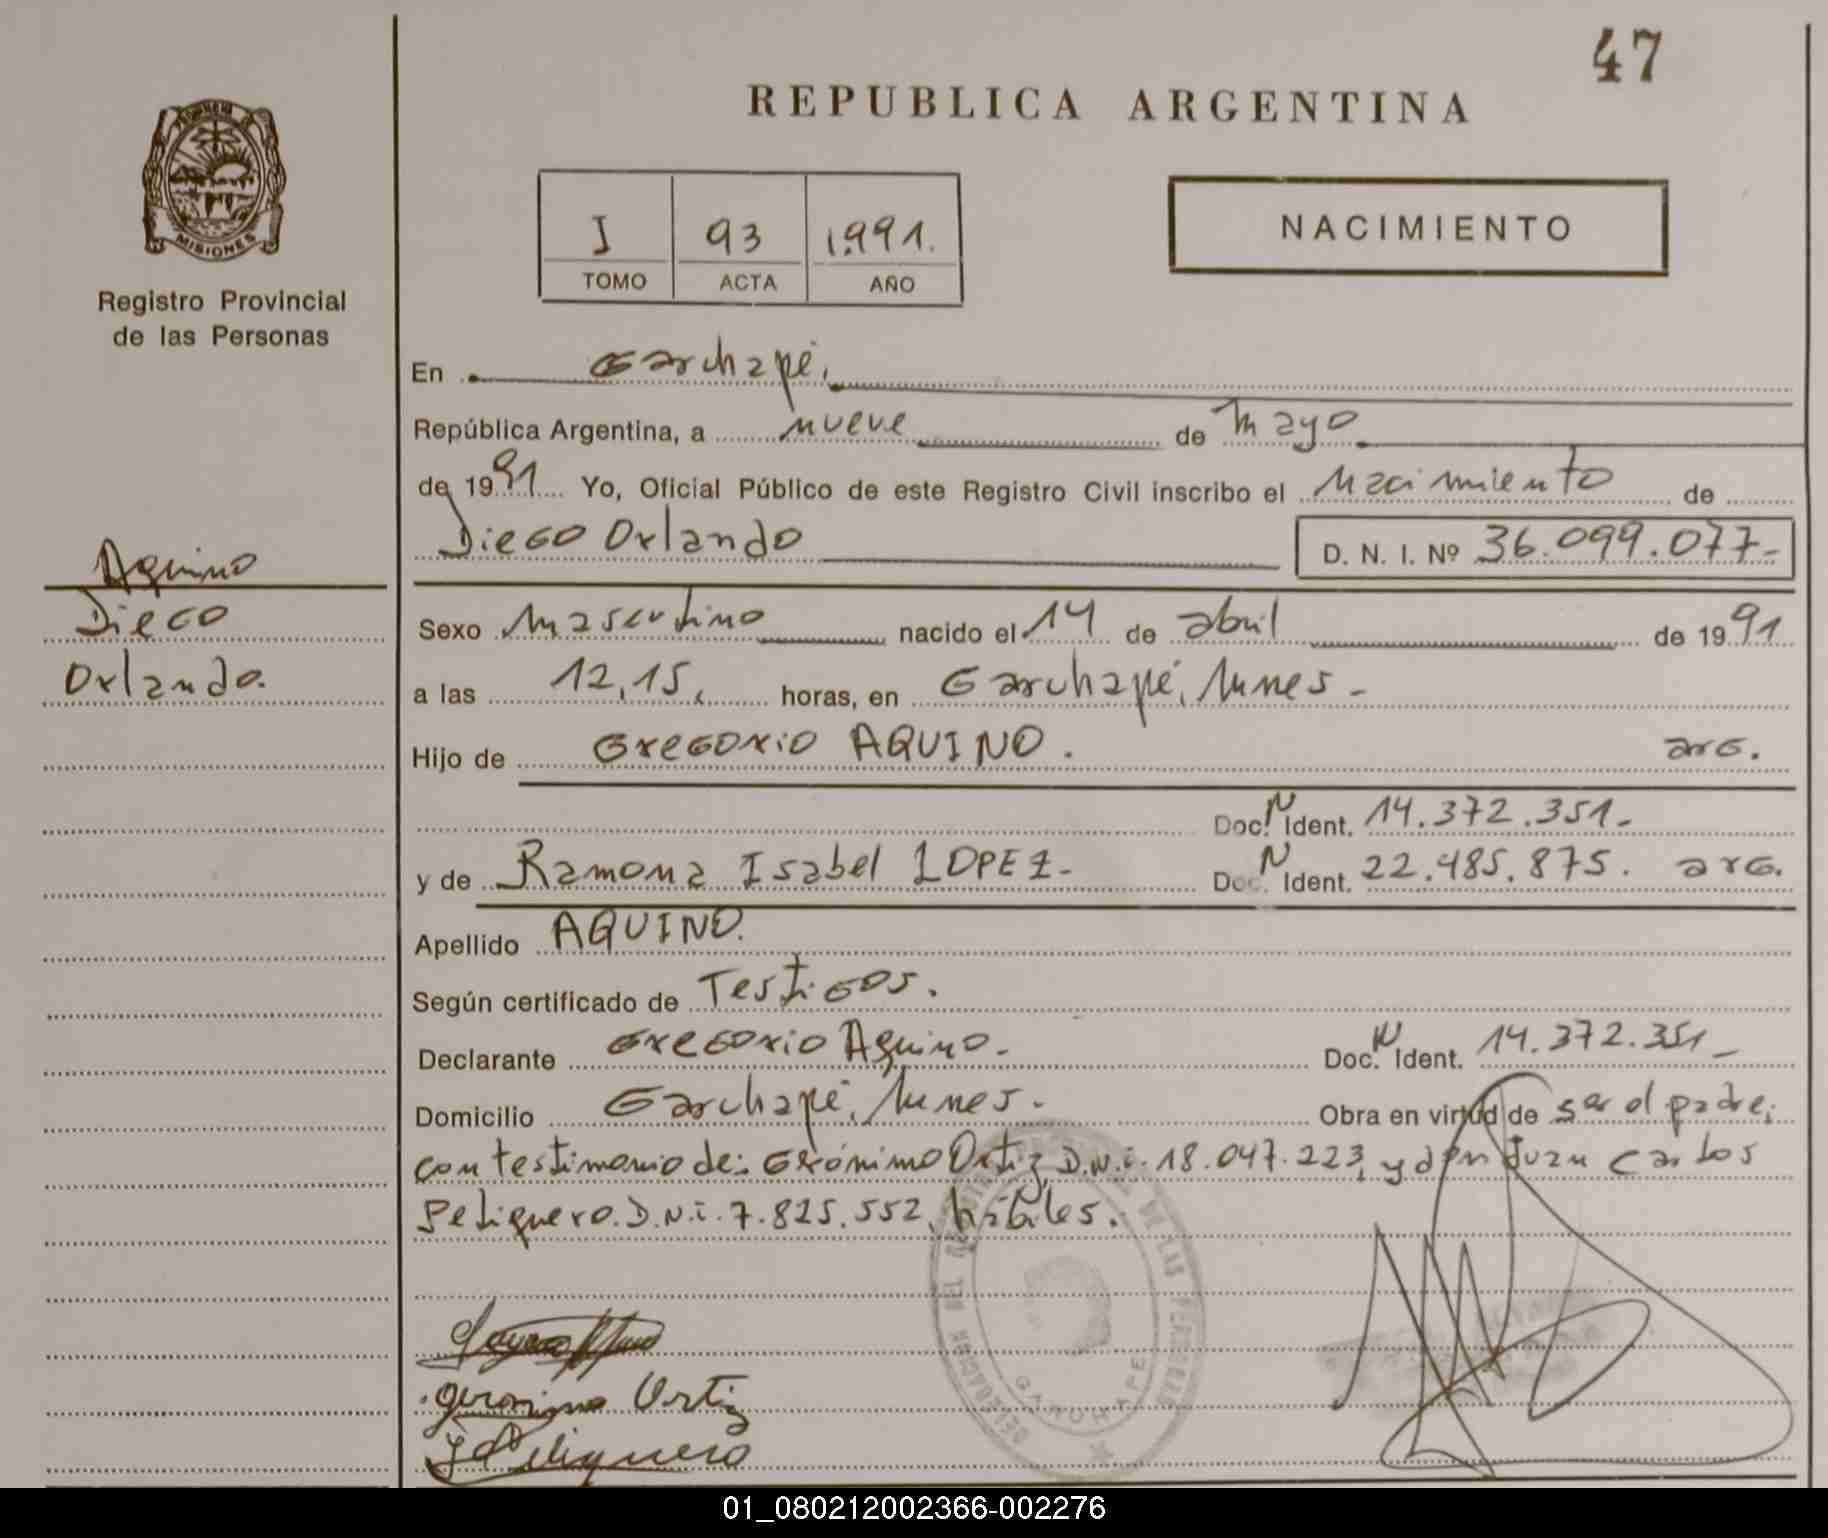 47
REPUBLICA ARGENTINA
MISIONES
Registro Provincial
de las Personas
I 93 1.991.
TOMO ACTA AÑO
NACIMIENTO
En Garuhapé,
República Argentina, a nueve de mayo
de 1991 Yo, Oficial Público de este Registro Civil inscribo el nacimiento de
Diego Orlando D. N. I. Nº 36.099.077-
Aquino
Diego
Orlando.
Sexo masculino nacido el 14 de abril de 1991
a las 12,15, horas, en Garuhapé, Mnes -
Hijo de Gregorio AQUINO. arg.
Doc. N Ident. 14.372.351.-
y de Ramona Isabel LOPEZ.- Doc. N Ident. 22.485.875. arg.
Apellido AQUINO.
Según certificado de Testigos.
Declarante Gregorio Aquino.- Doc. N Ident. 14.372.351-
Domicilio Garuhapé, Mnes.- Obra en virtud de ser el padre;
con testimonio de: Gerónimo Ortiz D.N.i. 18.047.223, y don Juan Carlos
Peliquero. D.N.i. 7.825.552, hábiles.
DE LAS PERSONAS
DELEGACION
GARUHAPE
Geronimo Ortiz
J C Peliquero
01_080212002366-002276